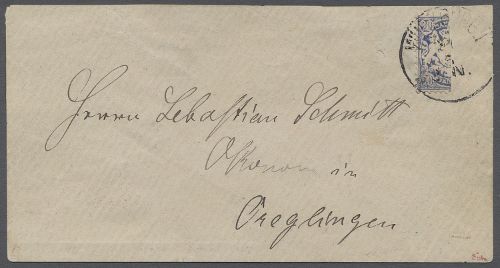 20
N.
Herrn Sebastian Schmitt
Ökonom in
Creglingen